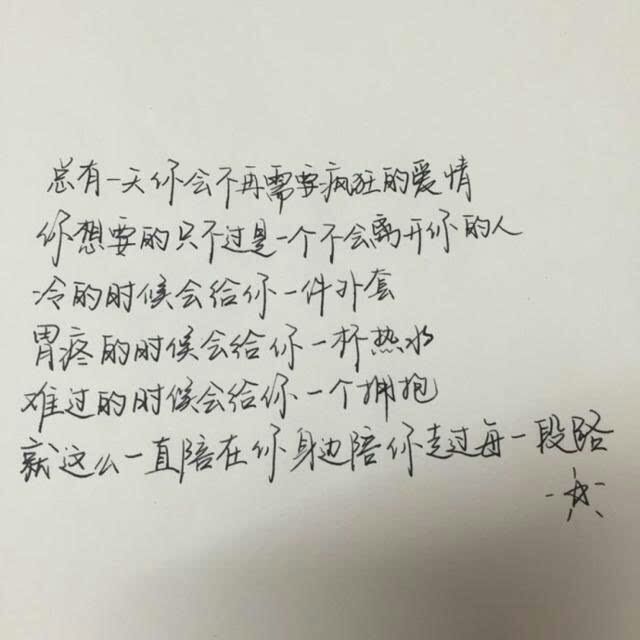 总有一天你会不再需要疯狂的爱情
你想要的只不过是一个不会离开你的人
冷的时候会给你一件外套
胃疼的时候会给你一杯热水
难过的时候会给你一个拥抱
就这么一直陪在你身边陪你走过每一段路